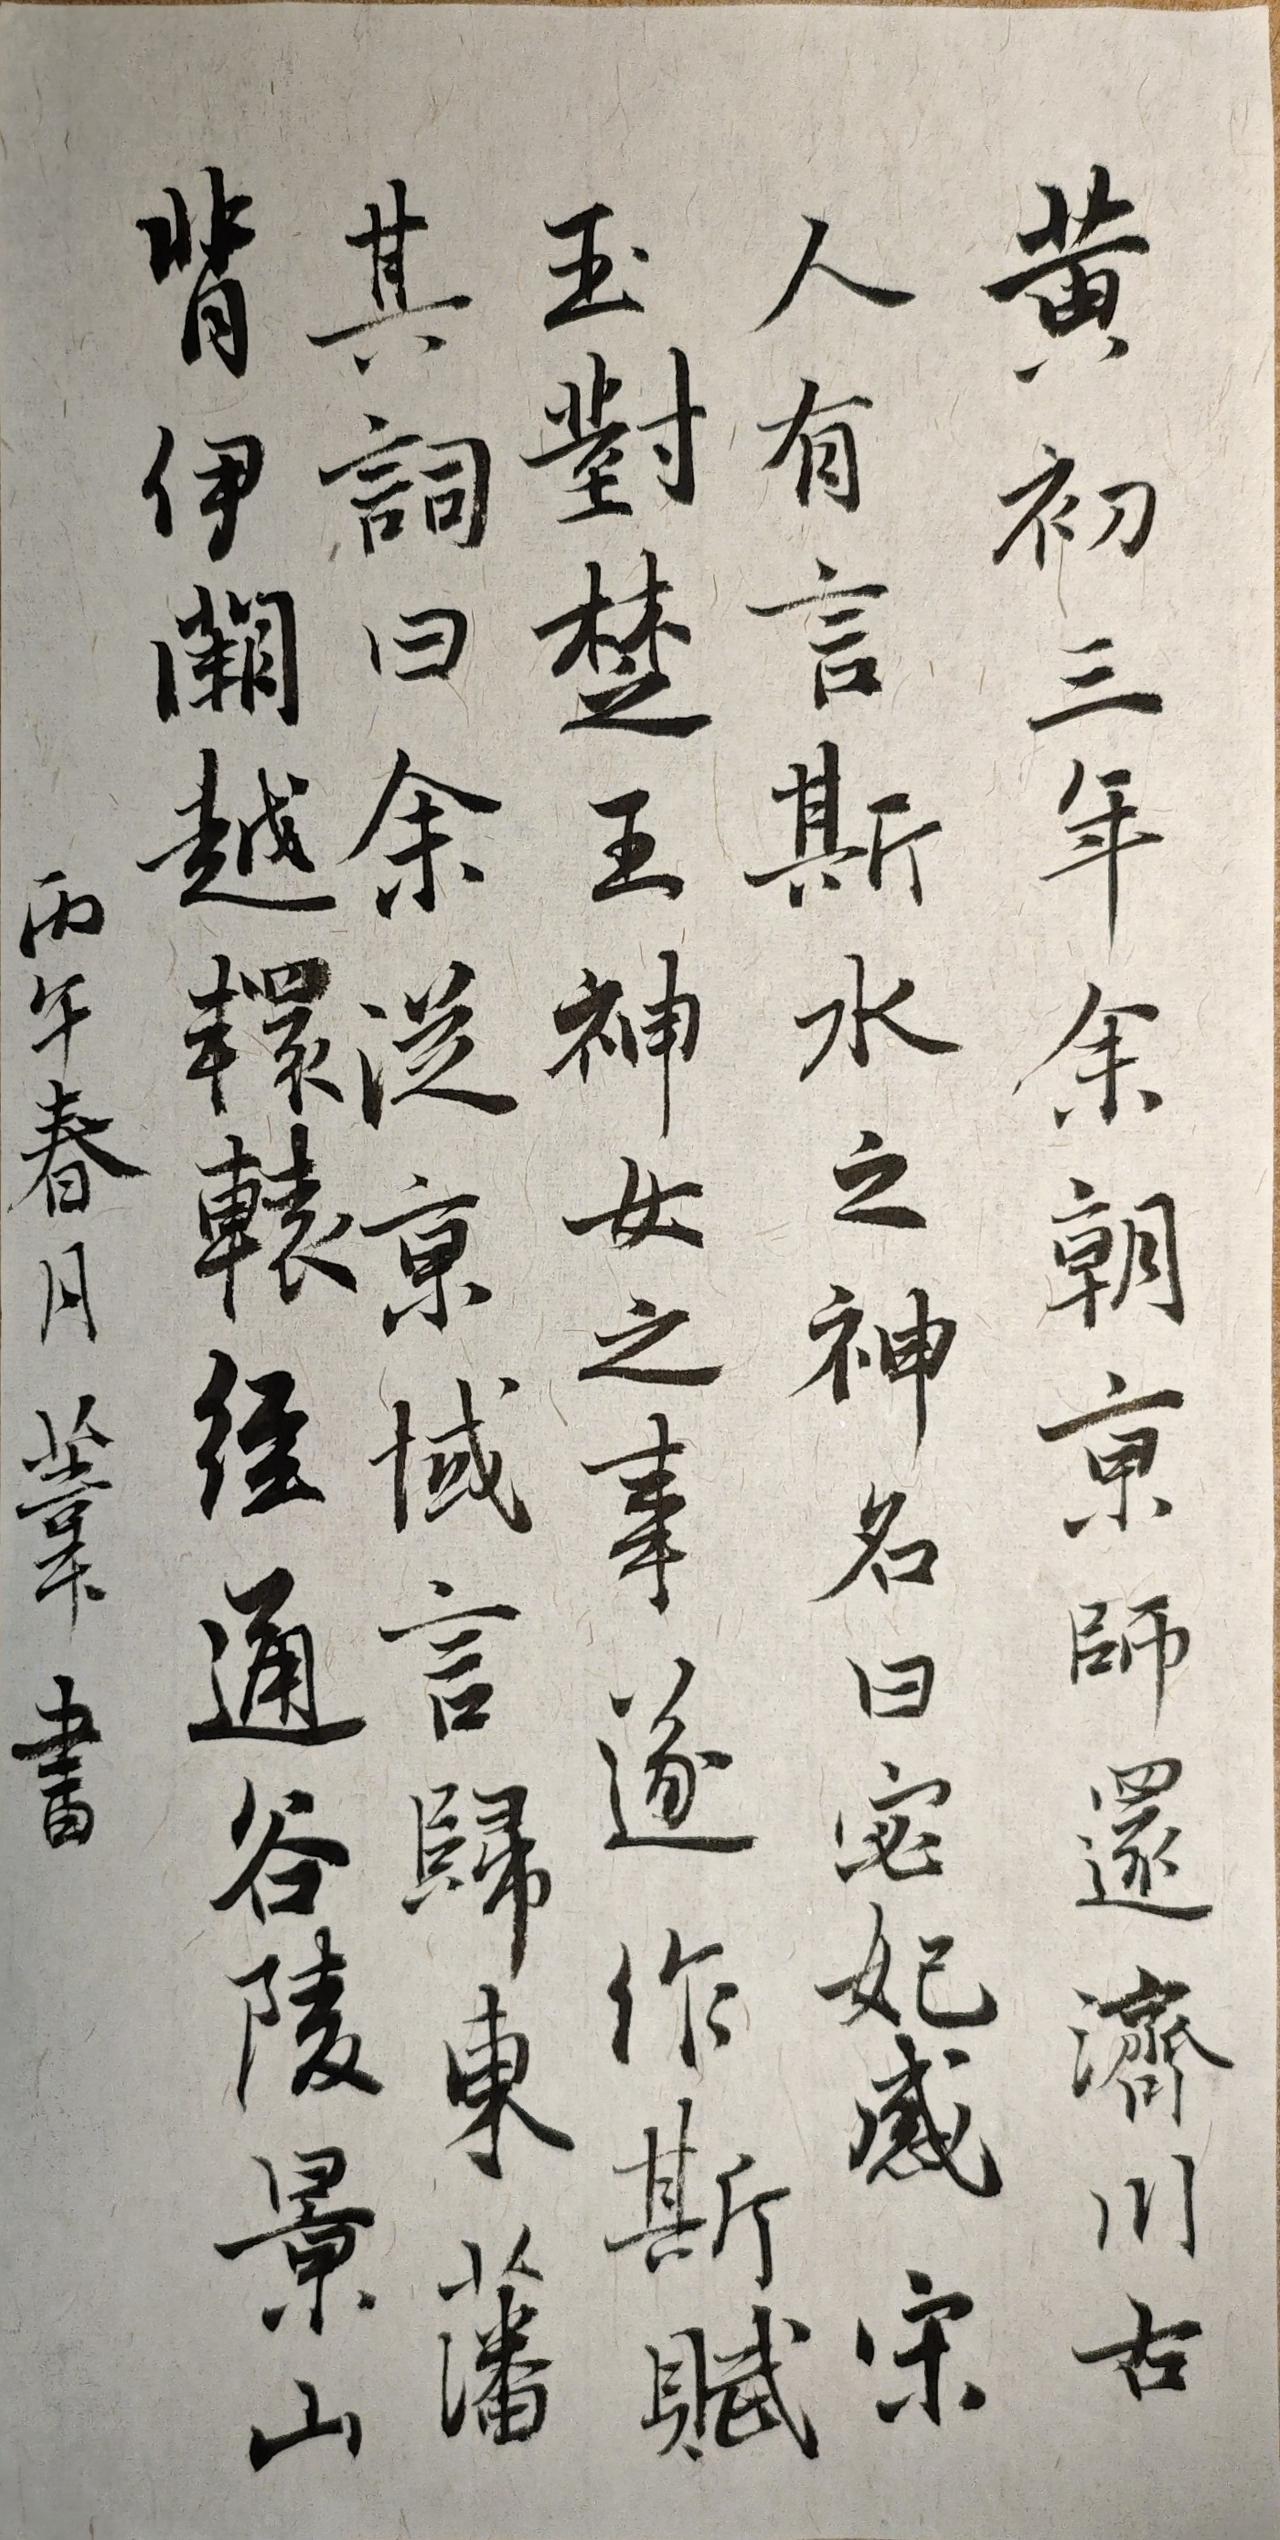 黃初三年余朝京師還濟川古
人有言斯水之神名曰宓妃感宋
玉對楚王神女之事遂作斯賦
其詞曰余從京域言歸東藩
背伊闕越轘轅經通谷陵景山
丙午春月 書